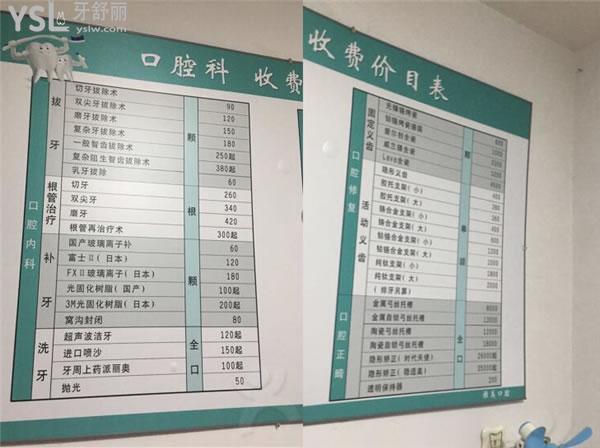 YSL牙舒丽
yslw.com
口腔科 收费
口腔内科
拔牙
颗
切牙拔除术 90
双尖牙拔除术 120
磨牙拔除术 150
复杂牙拔除术 180
一般智齿拔除术 250起
复杂阻生智齿拔除术 380起
乳牙拔除 60
根管治疗
根
切牙 260
双尖牙 340
磨牙 420
根管再治疗术 300起
补牙
颗
国产玻璃离子补 60
富士II(日本) 120
FXII玻璃离子(日本) 180
光固化树脂(国产) 100起
3M光固化树脂(日本) 200起
窝沟封闭 80
洗牙
全口
超声波洁牙 120起
进口喷沙 150起
牙周上药派丽奥 100起
抛光 50
收费价目表
口腔修复
固定义齿
颗
Lava全瓷
隐形义齿
活动义齿
胶托支架(小)
胶托支架(大)
铸合金支架(小)
铸合金支架(大)
钴铬合金支架(小)
钴铬合金支架(大)
纯钛支架(小)
纯钛支架(大)
口腔正畸
全口
金属弓丝托槽 8000
金属自锁弓丝托槽 12000
陶瓷弓丝托槽 12000
陶瓷自锁弓丝托槽 18000
隐形矫正(时代天使) 26000起
隐形矫正(隐适美) 35000起
透明保持器 200